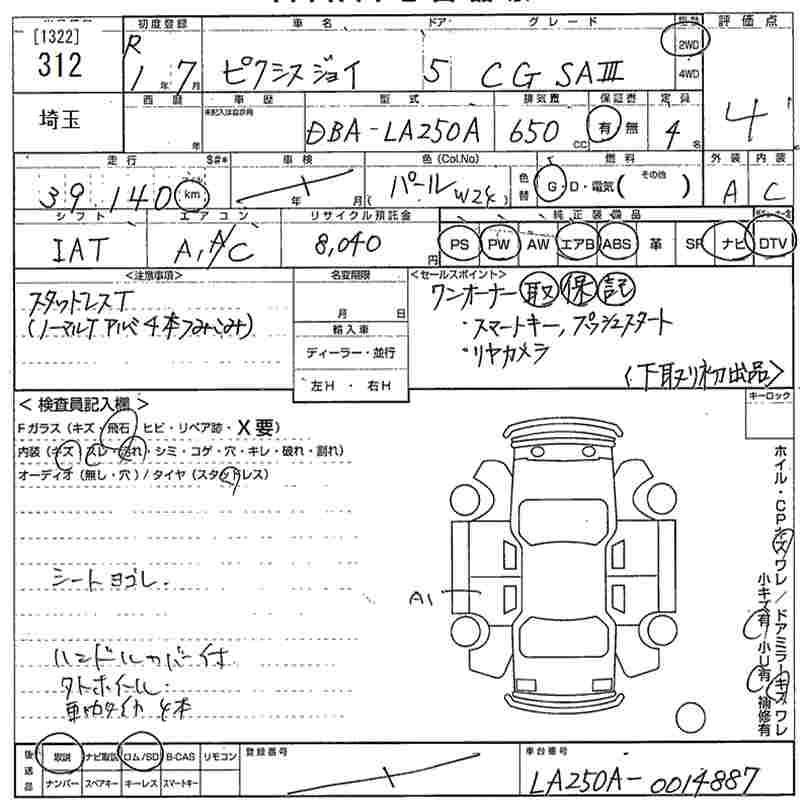 [1322]
312
初度登録 車名 ドア グレード 駆動 評価点
R 1年 7月 ピクシスジョイ 5 CG SAⅢ 2WD 4WD
埼玉
西暦 車歴 型式 排気量 保証書 定員
年 未記入は自家用 DBA-LA250A 650cc 有・無 4名 4
走行 $#* 車検 色(Col.No) 燃料 外装 内装
39,140 km 年 月 パール (W24 色替 G・D・電気( その他 ) A C
シフト エアコン リサイクル預託金 純正装備品
IAT A,A/C 8,040円 PS PW AW エアB ABS 革 SR ナビ DTV
<注意事項> 名変期限 <セールスポイント>
スタットレスT
(ノーマルTアルミ4本つみこみ)
月 日
輸入車
ディーラー・並行
左H・右H
ワンオーナー 取 保 記
・スマートキー,プッシュスタート
・リヤカメラ
〈下取り初出品〉
キーロック
<検査員記入欄>
Fガラス(キズ・飛石・ヒビ・リペア跡・X要)
内装(キズ・スレ・汚れ・シミ・コゲ・穴・キレ・破れ・割れ)
オーディオ(無し・穴)/タイヤ(スタッドレス)
シートヨゴレ.
ハンドルカバー付
タトホイール
4本
A1
ホイル・CPキズワレ/ドアミラーキズワレ
小キズ有 小U有 補修有
後送品 取説 ナビ取説 ロム/SD B-CAS リモコン 登録番号 車台番号
ナンバー スペアキー キーレス スマートキー LA250A-0014887